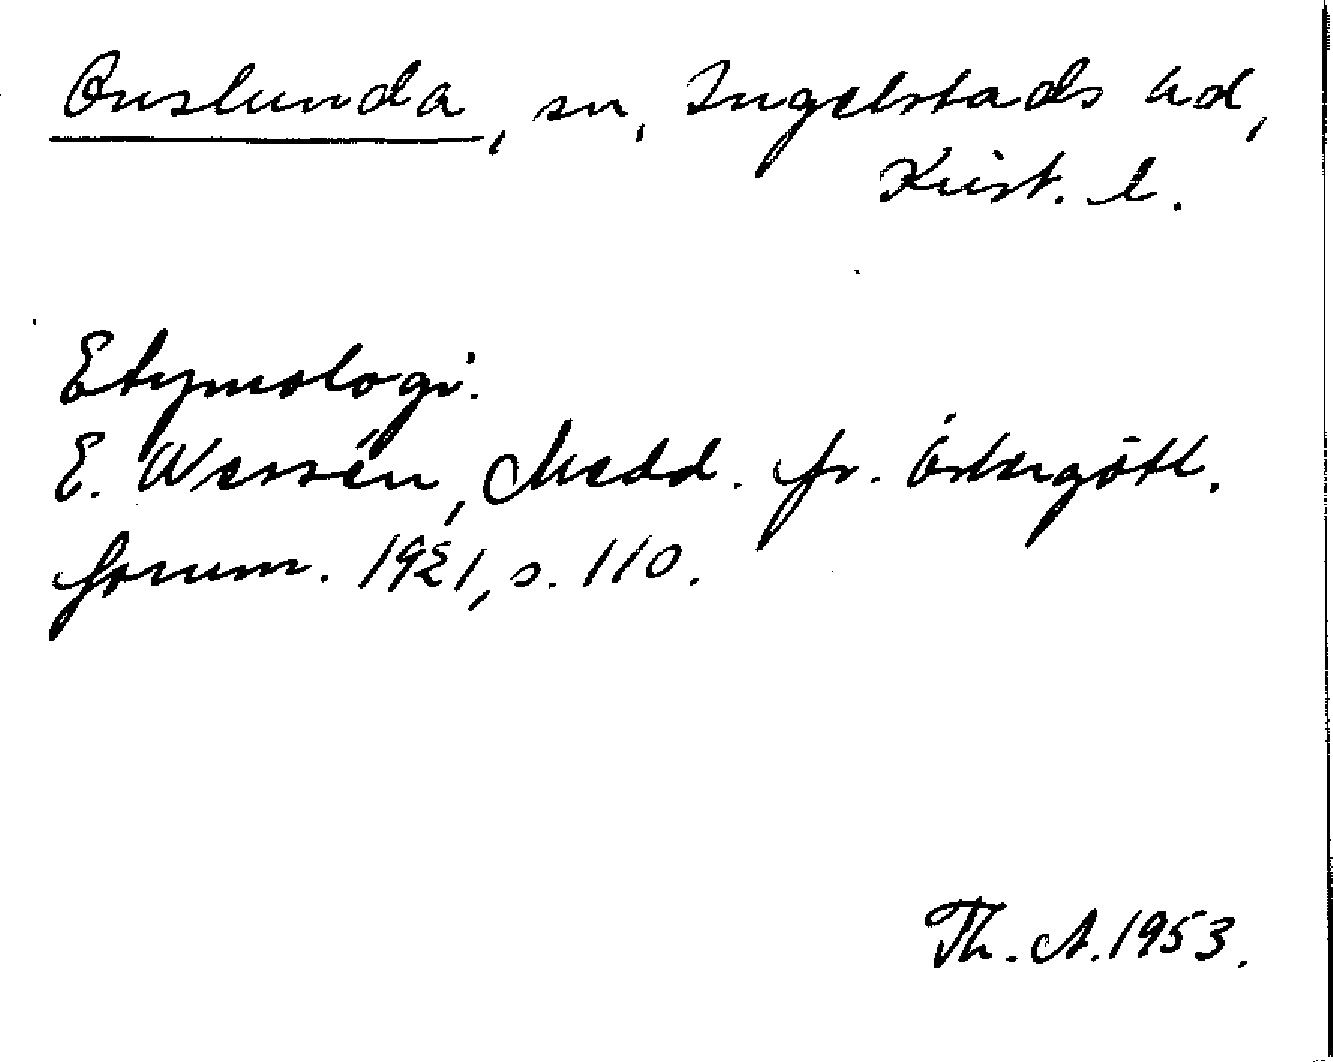 Onslunda, sn, Ingelstads hd,
Krist. l.
Etymologi.
E. Wessén, Medd. fr. Östergötl.
fornm. 1921, s. 110.
Th. A. 1953.